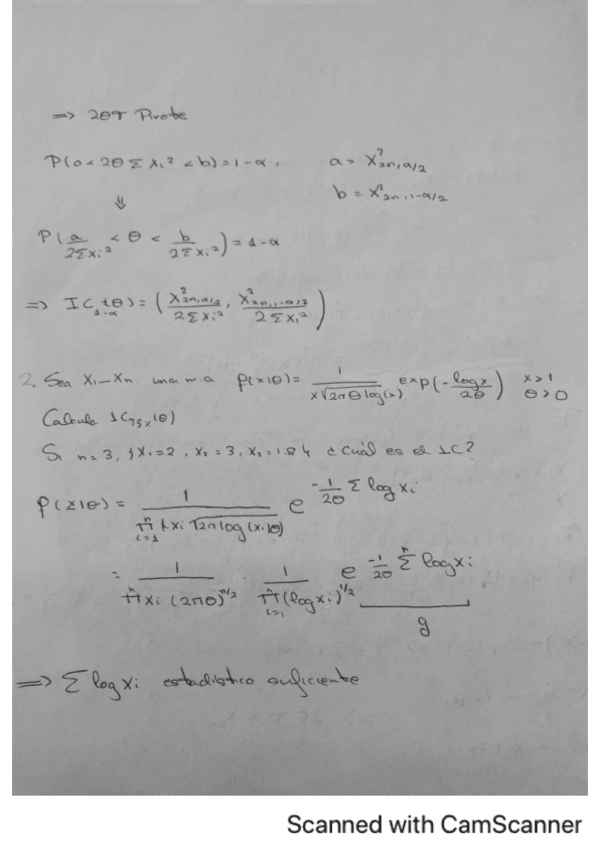 => 2θT Pivote
P(a < 2θ Σ xi² < b) = 1-α. a = χ²2n,α/2
b = χ²2n,1-α/2
⇓
P(a/2Σxi² < θ < b/2Σxi²) = 1-α
=> IC1-α(θ) = (χ²2n,α/2 / 2Σxi², χ²2n,1-α/2 / 2Σxi²)
2. Sea X1-Xn una m.a f(x|θ) = 1/(x√2πθlog(x)) exp(-logx/2θ) x>1 θ>0
Calcula IC95%(θ)
Si n=3, X1=2, X2=3, X3=1.84 ¿Cuál es el IC?
f(x|θ) = 1/(π i=1 n xi √2πlog(xi)θ) e -1/2θ Σ log xi
= 1/(π n xi (2πθ) n/2) · 1/(π i=1 n (log xi)1/2) e -1/2θ Σ n log xi
g
=> Σ log xi estadístico suficiente
Scanned with CamScanner